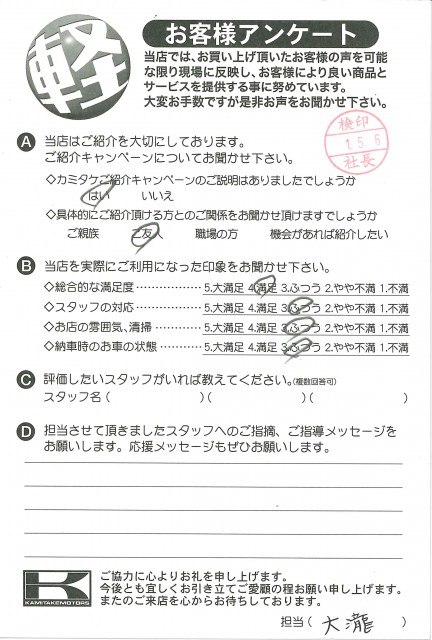 軽
お客様アンケート
当店では、お買い上げ頂いたお客様の声を可能
な限り現場に反映し、お客様により良い商品と
サービスを提供する事に努めています。
大変お手数ですが是非お声をお聞かせ下さい。
検印
1.5.6
社長
A 当店はご紹介を大切にしております。
ご紹介キャンペーンについてお聞かせ下さい。
◇カミタケご紹介キャンペーンのご説明はありましたでしょうか
はい いいえ
◇具体的にご紹介頂ける方とのご関係をお聞かせ頂けますでしょうか
ご親族 ご友人 職場の方 機会があれば紹介したい
B 当店を実際にご利用になった印象をお聞かせ下さい。
◇総合的な満足度 ‥‥‥‥‥‥ 5.大満足 4.満足 3.ふつう 2.やや不満 1.不満
◇スタッフの対応 ‥‥‥‥‥‥ 5.大満足 4.満足 3.ふつう 2.やや不満 1.不満
◇お店の雰囲気、清掃 ‥‥‥‥ 5.大満足 4.満足 3.ふつう 2.やや不満 1.不満
◇納車時のお車の状態 ‥‥‥‥ 5.大満足 4.満足 3.ふつう 2.やや不満 1.不満
C 評価したいスタッフがいれば教えてください。(複数回答可)
スタッフ名( )( )( )
D 担当させて頂きましたスタッフへのご指摘、ご指導メッセージを
お願いします。応援メッセージもぜひお願いします。
K
KAMITAKEMOTORS
ご協力に心よりお礼を申し上げます。
今後とも宜しくお引き立てご愛顧の程お願い申し上げます。
またのご来店を心からお待ちしております。
担当( 大瀧 )